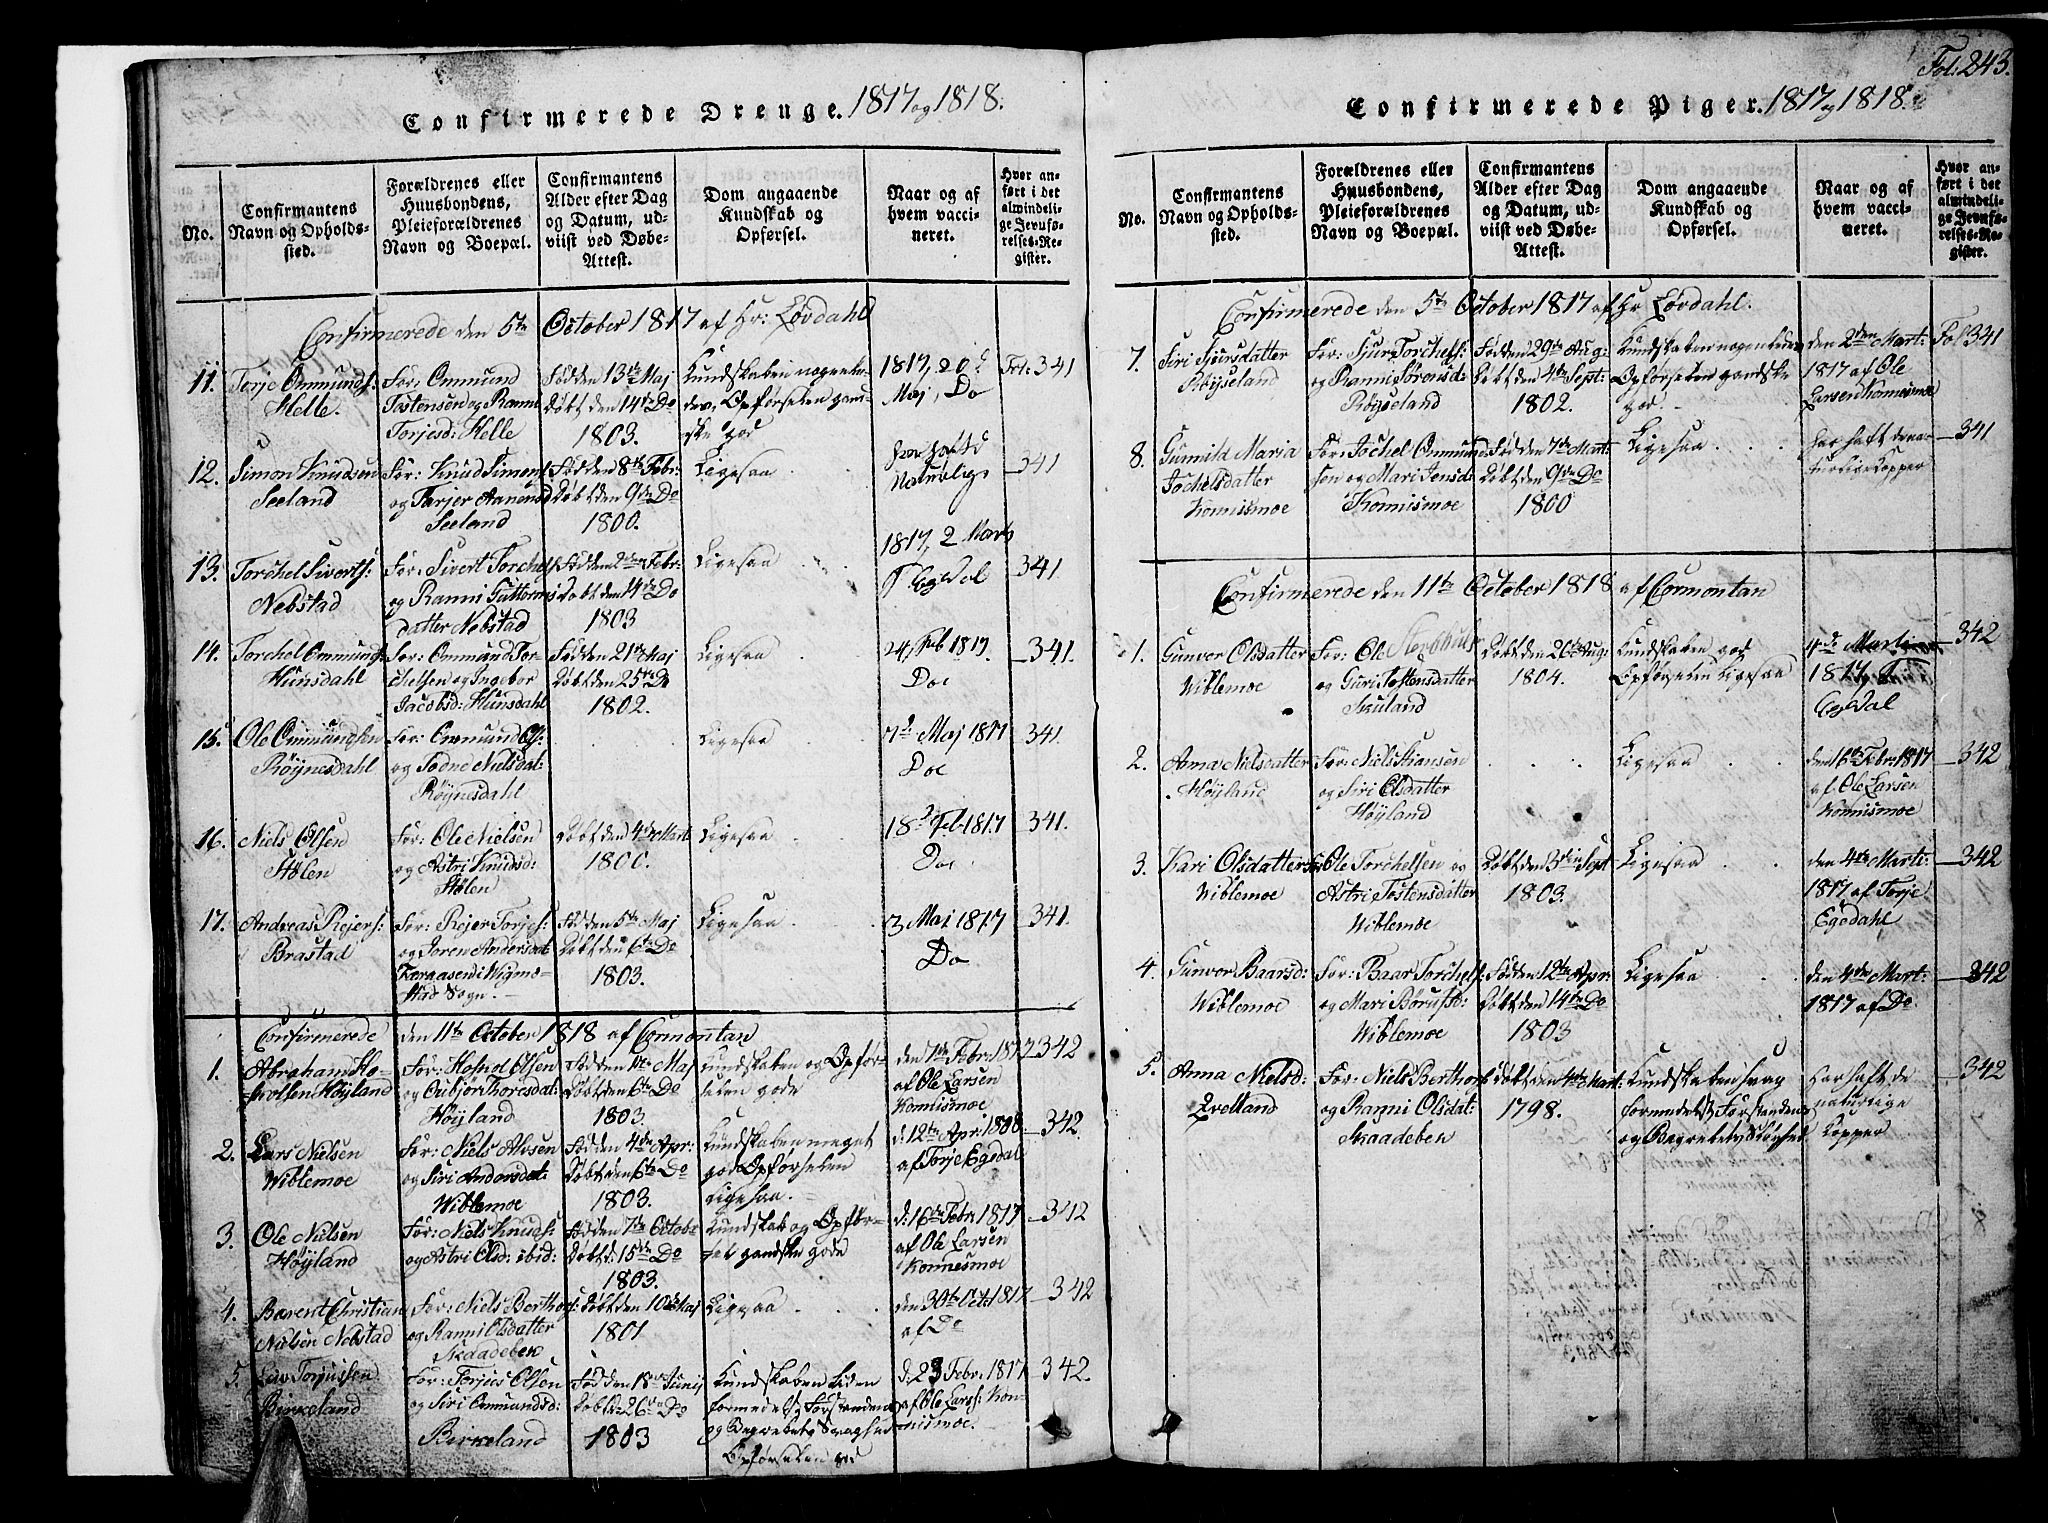 Confirmerede Drenge. 1817 og 1818.
No.
Confirmantens
Navn og Opholds-
sted.
Forældrenes eller
Huusbondens,
Pleieforældrenes
Navn og Boepæl.
Confirmantens
Alder efter Dag
og Datum, ud-
viist ved Døbe-
Attest.
Dom angaaende
Kundskab og
Opførsel.
Naar og af
hvem vacci-
neret.
Hvor an-
ført i det
almindeli-
ge Jevnfø-
relses-Re-
gister.
Confirmerede den 5te October 1817 af Hr: Lövdahl
11.
Torje Ommunds:
Helle.
For: Ommund
Tostensen og Ranni
Torjesd: Helle
Född den 13te Maj
Döbt den 14de Do
1803.
Kundskaben nogenlun-
den, Opförselen gand-
ske god
1817, 20d
Maj, Do
Fol: 341
12.
Simon Knudsen
Seeland
For: Knud Simens:
og Tarjer Aanensd
Seeland
Född den 8te Febr:
Döbt den 9de Do
1800.
Ligesaa
har hafte
Naturlige
341
13.
Torchel Siverts:
Nebstad
For: Sivert Torchels:
og Ranni Guttorms
datter Nebstad
Född den 2den Febr:
Döbt den 14de Do
1803
Ligesaa
1817, 2 Marts
T. Egdal
341
14.
Torchel Ommunds:
Hunsdahl
For: Ommund Tor-
chelsen og Ingebor
Jacobsd: Hunsdahl
Född den 21de Maj
Döbt den 25de Do
1802.
Ligesaa
24 Feb 1817.
Do
341.
15.
Ole Ommundsen
Röynesdahl
For: Ommund Ols:
og Todne Nielsdat:
Röynesdahl
Ligesaa
7d Maj 1817
Do
341.
16.
Niels Olsen
Stölen
For: Ole Nielsen
og Astri Knudsd:
Stölen
Döbt den 4de Marti
1800.
Ligesaa
18d Feb 1817
Do
341.
17.
Andreas Rejers:
Brastad
For: Rejer Torjes:
og Soren Andersdat:
i Wigmo-
stad Sogn.
Född den 5te Maj
Döbt den 6te Do
1803.
Ligesaa
3 Maj 1817
Do
341.
Confirmerede den 11te October 1818 af Cormontan
1.
Abraham Ho-
skolsen Höyland
For: Hoskol Olsen
og Anbjor Thoresdat:
Höyland
Född den 1te Maj
Döbt den 6te Do
1803.
Kundskaben og Opför-
selen gode
den 1de Febr: 1817
af Ole Larsen
Konnismoe
342
2.
Lars Nielsen
Wiblemoe
For: Niels Alvsen
og Siri Andersdat:
Wiblemoe
Född den 4de Apr:
Döbt den 6te Do
1803.
Kundskaben meget
god Opförselen
Ligesaa.
d: 12te Apr: 1808
af Torje Egsdal
342.
3.
Ole Nielsen
Höyland
For: Niels Knuds:
og Astri Olsd: ibid:
Född den 7de Octobr
Döbt d: 15de Do
1803.
Kundskab og Opför-
sel gandske gode
d: 16de Febr: 1817
af Ole Larsen
Konnesmoe
342
4.
Barent Christian
Nielsen Nebstad
For: Niels Berthors:
og Ranni Olsdatter
Skaadeben
Döbt den 10de Maj
1801
Ligesaa
den 30te Oct: 1817
af Do
342
5.
Lars Torjussen
Birkeland
For: Torjus Olsen
og Siri Ommundsd:
Birkeland
Född den 18de Junij
Döbt d: 26de Do
1803
Kundskaben liden
formedelst Forstandens
og Begrebets Svaghed
Opförselen god
d: 23 Febr: 1817
af Ole Lars: Kon-
nismoe.
342.
Fol: 243.
Confirmerede Piger. 1817 og 1818.
No.
Confirmantens
Navn og Opholds-
sted.
Forældrenes eller
Huusbondens,
Pleieforældrenes
Navn og Boepæl.
Confirmantens
Alder efter Dag
og Datum, ud-
viist ved Døbe-
Attest.
Dom angaaende
Kundskab og
Opførsel.
Naar og af
hvem vacci-
neret.
Hvor an-
ført i det
almindeli-
ge Jevnfø-
relses-Re-
gister.
Confirmerede den 5te October 1817 af Hr Lövdahl.
7.
Siri Sjursdatter
Röyseland
For: Sjur Torchels:
og Ranni Sörensd:
Röyseland
Född den 29de Aug:
Döbt den 4de Sept:
1802.
Kundskaben nogenlunde
Opförselen gandske
god.
den 2den Mart:
1817 af Ole
Larsen Konnismoe
Fol 341
8.
Gunnild Maria
Jochelsdatter
Konnismoe
For: Jochel Ommund-
sen og Mari Jensd:
Konnismoe
Född den 7de Mart:
Döbt den 9de Do
1800
Ligesaa
har haft de na-
turlige Kopper
341
Confirmerede den 11te October 1818 af Cormontan
1.
Gunvor Olsdatter
Wiblemoe
For: Ole
og Guri Tostensdatter
Skuland
Döbt den 26de Aug:
1804.
Kundskaben god
Opförselen Ligesaa
4de Marti
1817, T
Egdal
342
2.
Anna Nielsdatter
Höyland
For: Niels Hansen
og Siri Olsdatter
Höyland
Ligesaa
den 16de Febr: 1817
af Ole Larsen
Konnismoe
342
3.
Kari Olsdatter
Wiblemoe
For: Ole Torchelsen og
Astri Tostensdatter
Wiblemoe
Döbt den 3die Sept
1803.
Ligesaa
den 4de Marti:
1817 af Torje
Egsdahl
342
4.
Gunvor Baarsd:
Wiblemoe
For: Baar Torchels:
og Mari Börusd:
Wiblemoe
Född den 12te Apr:
Döbt den 14de Do
1803
Ligesaa
den 4de Mart:
1817 af Do
342
5.
Anna Nielsd:
Qvelland
For: Niels Berthors:
og Ranni Olsdat:
Skaadeben
Döbt den 4de Mart:
1798.
Kundskaben svag
formedelst Forstandens
og Begrebets Slövhed
Har haft de
naturlige
Kopper
342